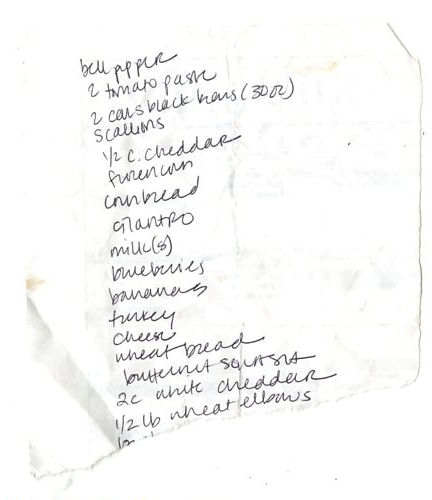 bell pepper
2 tomato paste
2 cans black beans (30oz)
scallions
1/2 c. cheddar
frozen corn
cornbread
cilantro
milk(s)
blueberries
bananas
turkey
cheese
wheat bread
butternut squash
2c white cheddar
1/2 lb wheat elbows